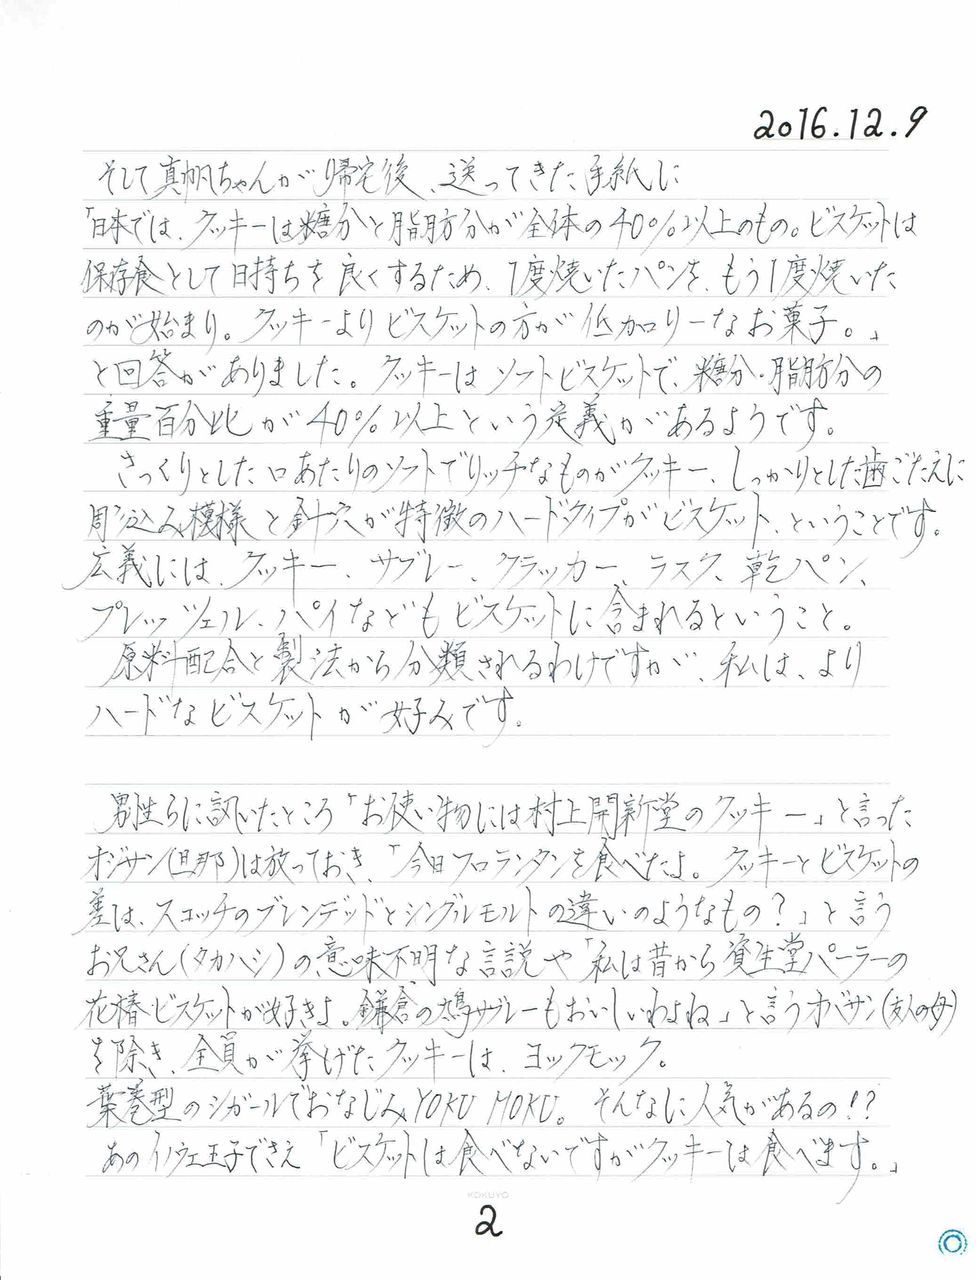 2016.12.9
そして真帆ちゃんが帰宅後、送ってきた手紙に
「日本では、クッキーは糖分と脂肪分が全体の40%以上のもの。ビスケットは
保存食として日持ちを良くするため、1度焼いたパンを、もう1度焼いた
のが始まり。クッキーよりビスケットの方が低カロリーなお菓子。」
と回答がありました。クッキーはソフトビスケットで、糖分・脂肪分の
重量百分比が40%以上という定義があるようです。
さっくりとした口あたりのソフトでリッチなものがクッキー、しっかりとした歯ごたえに
周り込み模様と針穴が特徴のハードタイプがビスケット、ということです。
広義には、クッキー、サブレー、クラッカー、ラスク、乾パン、
プレッツェル、パイなどもビスケットに含まれるということ。
原料配合と製法から分類されるわけですが、私は、より
ハードなビスケットが好みです。
男性らに訊いたところ「お使い物には村上開新堂のクッキー」と言った
オジサン(旦那)は放っておき、「今日フロランタンを食べたよ。クッキーとビスケットの
差は、スコッチのブレンデッドとシングルモルトの違いのようなもの?」と言う
お兄さん(タカハシ)の意味不明な言説や「私は昔から資生堂パーラーの
花椿ビスケットが好きよ。鎌倉の鳩サブレーもおいしいわよね」と言うオバサン(友人の母)
を除き、全員が挙げたクッキーは、ヨックモック。
葉巻型のシガールでおなじみYOKU MOKU。そんなに人気があるの!?
あのイノウエ王子でさえ「ビスケットは食べないですがクッキーは食べます。」
KOKUYO
2